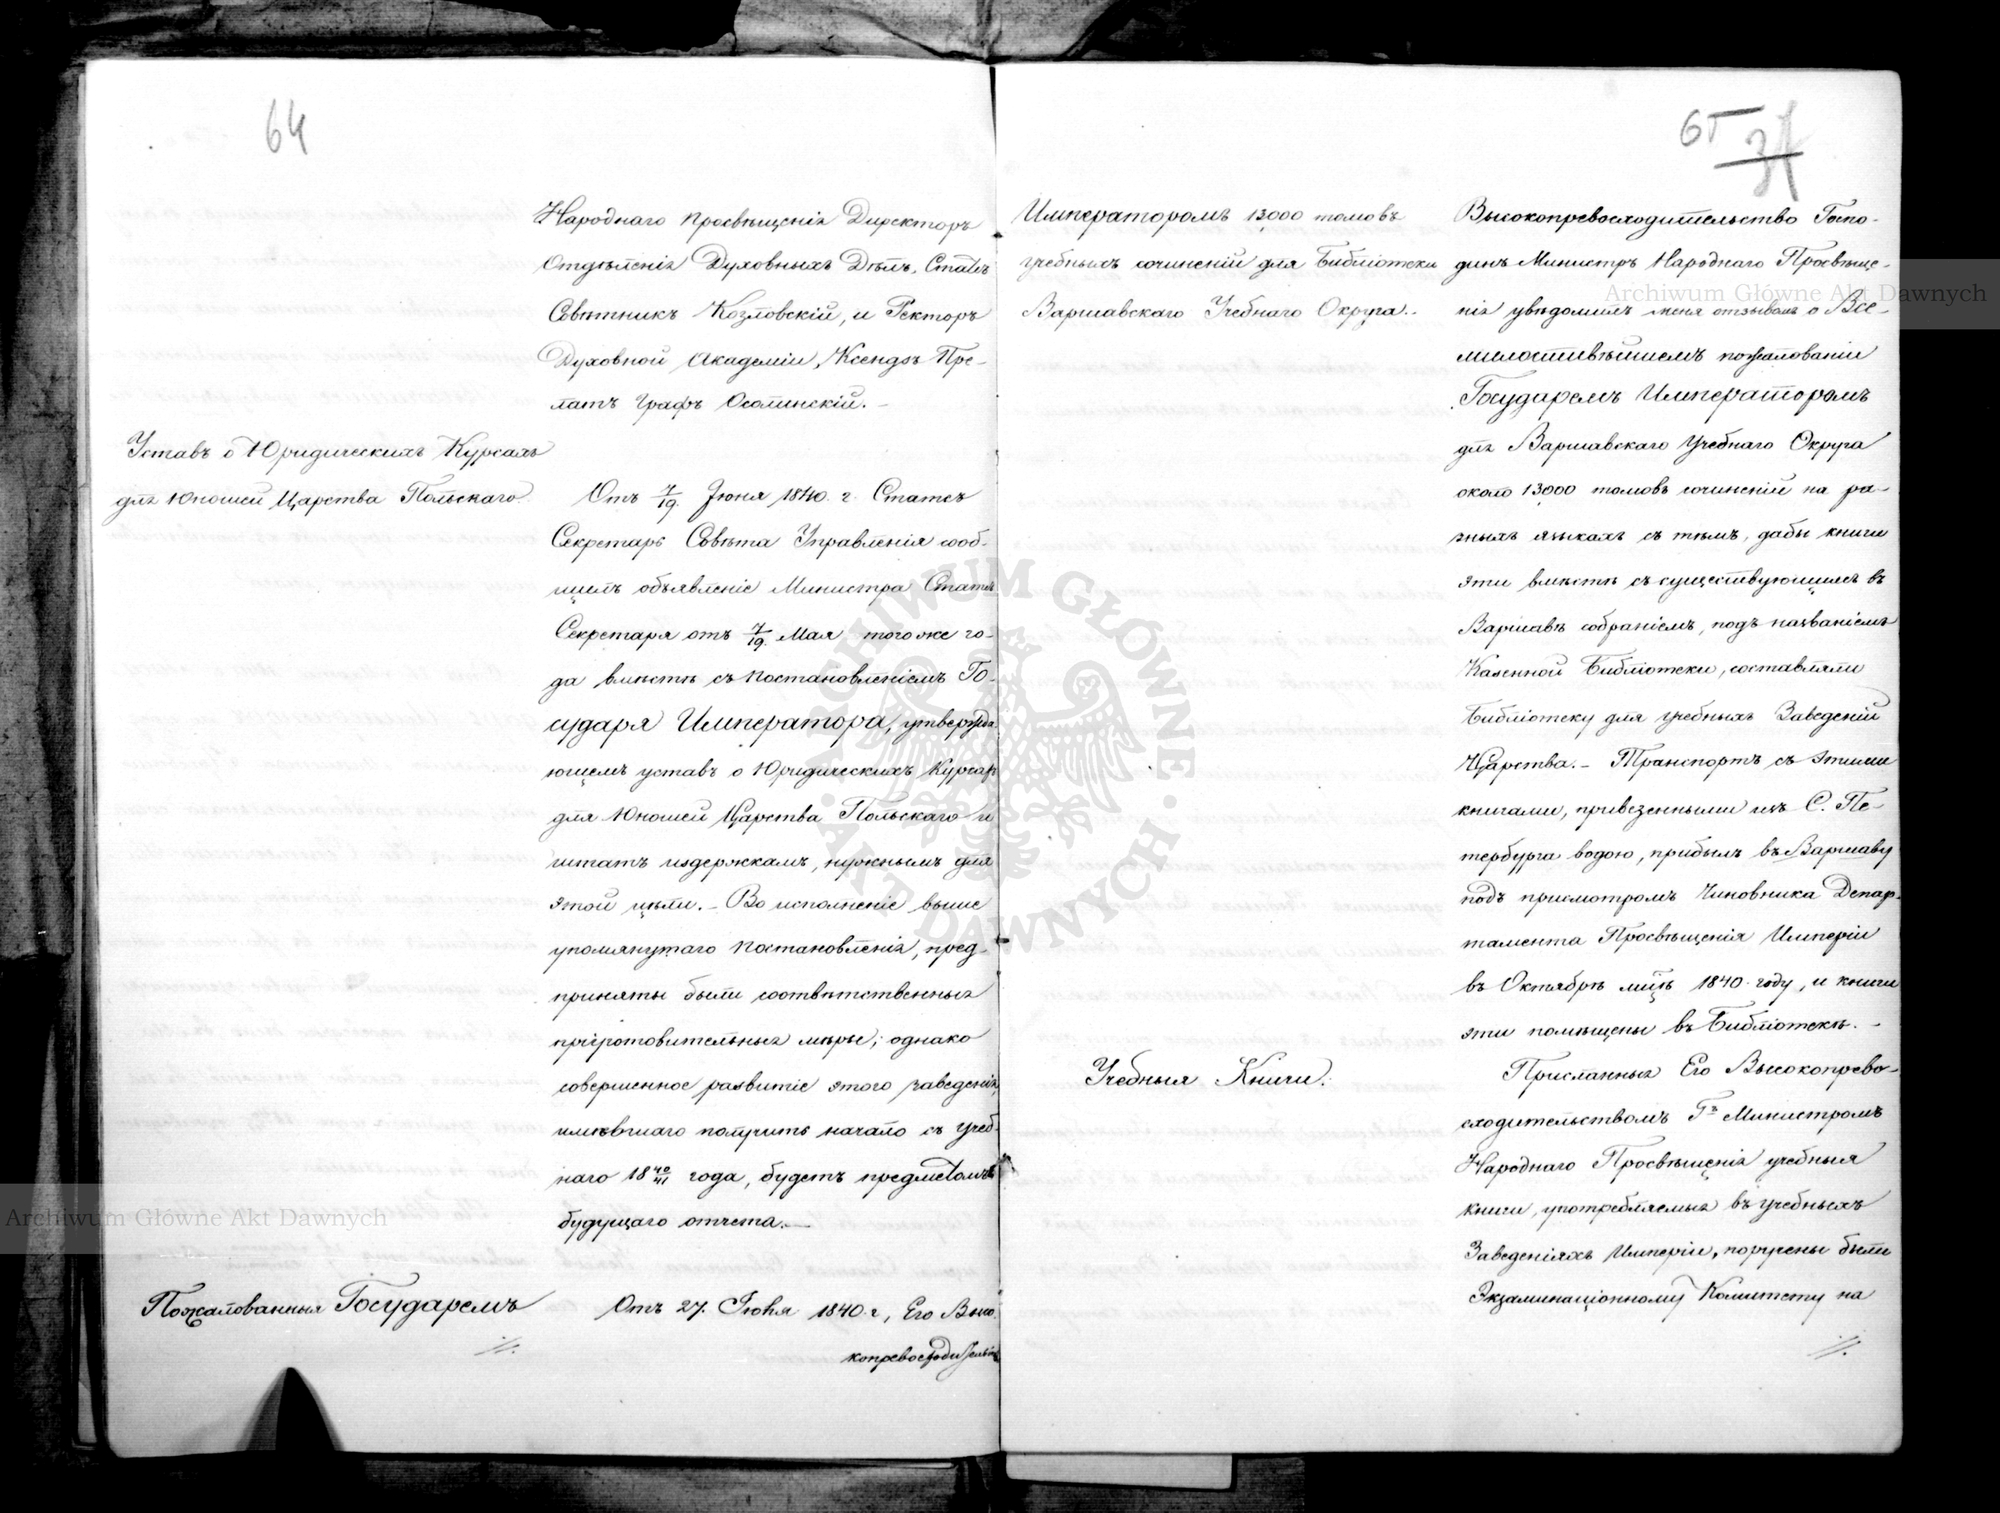 64
Народнаго Просвѣщенія Директоръ
Отдѣленія Духовныхъ Дѣлъ, Статс
Совѣтникъ Козловскій, и Ректоръ
Духовной Академіи, Ксендзъ Пре-
латъ Графъ Осолинскій. –
Уставъ о Юридическихъ Курсахъ
для Юношей Царства Польскаго.
Отъ 7/19. Іюня 1840. г. Статсъ
Секретарь Совѣта Управленія сооб-
щилъ объявленіе Министра Статсъ
Секретаря отъ 7/19. Мая тогоже го-
да вмѣстѣ съ Постановленіемъ Го-
сударя Императора, утвержда-
ющемъ уставъ о Юридическихъ Курсах
для Юношей Царства Польскаго и
штатъ издержкамъ, нужнымъ для
этой цѣли. – Во исполненіе выше
упомянутаго Постановленія, пред-
приняты были соотвѣтственныя
приготовительныя мѣры; однако
совершенное развитіе этого заведенія,
имѣвшаго получить начало съ учеб-
наго 18 40/41 года, будетъ предметомъ
будущаго отчета. –
Пожалованныя Государемъ
Отъ 27. Іюня 1840. г, Его Высо-
копревосходительство
65
37
Императоромъ 13000 томовъ
учебныхъ сочиненій для Библіотеки
Варшавскаго Учебнаго Округа. –
Высокопревосходительство Госпо-
динъ Министръ Народнаго Просвѣще-
нія увѣдомилъ меня отзывомъ о Все-
милостивѣйшемъ пожалованіи
Государемъ Императоромъ
для Варшавскаго Учебнаго Округа
около 13000 томовъ сочиненій на ра-
зныхъ языкахъ съ тѣмъ, дабы книги
эти вмѣстѣ съ существующимъ въ
Варшавѣ собраніемъ, подъ названіемъ
Казенной Библіотеки, составляли
Библіотеку для учебныхъ Заведеній
Царства. – Транспортъ съ этими
книгами, привезенными изъ С. Пе-
тербурга водою, прибылъ въ Варшаву
подъ присмотромъ Чиновника Депар-
тамента Просвѣщенія Имперіи
въ Октябрѣ мцѣ 1840 году, и книги
эти помѣщены въ Библіотекѣ. –
Учебныя Книги.
Присланныя Его Высокопрево-
сходительствомъ Гъ Министромъ
Народнаго Просвѣщенія учебныя
книги, употребляемыя въ учебныхъ
Заведеніяхъ Имперіи, поручены были
Экзаминаціонному Комитету на
Archiwum Główne Akt Dawnych
Archiwum Główne Akt Dawnych
ARCHIWUM GŁÓWNE AKT DAWNYCH